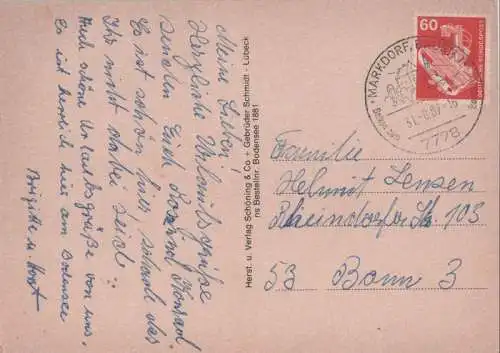 Meine Lieben!
Herzliche Urlaubsgrüße
senden Euch
Konrad
Es ist schön hier, schade das
Ihr nicht dabei seid!
Auch schöne Urlaubsgrüße von uns,
Es ist herrlich hier am Bodensee
Brigitte u. Horst
Herst. u. Verlag Schöning & Co + Gebrüder Schmidt - Lübeck
ns Bestellnr. Bodensee 1881
60
DEUTSCHE BUNDESPOST
MARKDORF,
7778
Familie
Helmut Jensen
Rheindorfer Str. 103
53 Bonn 3